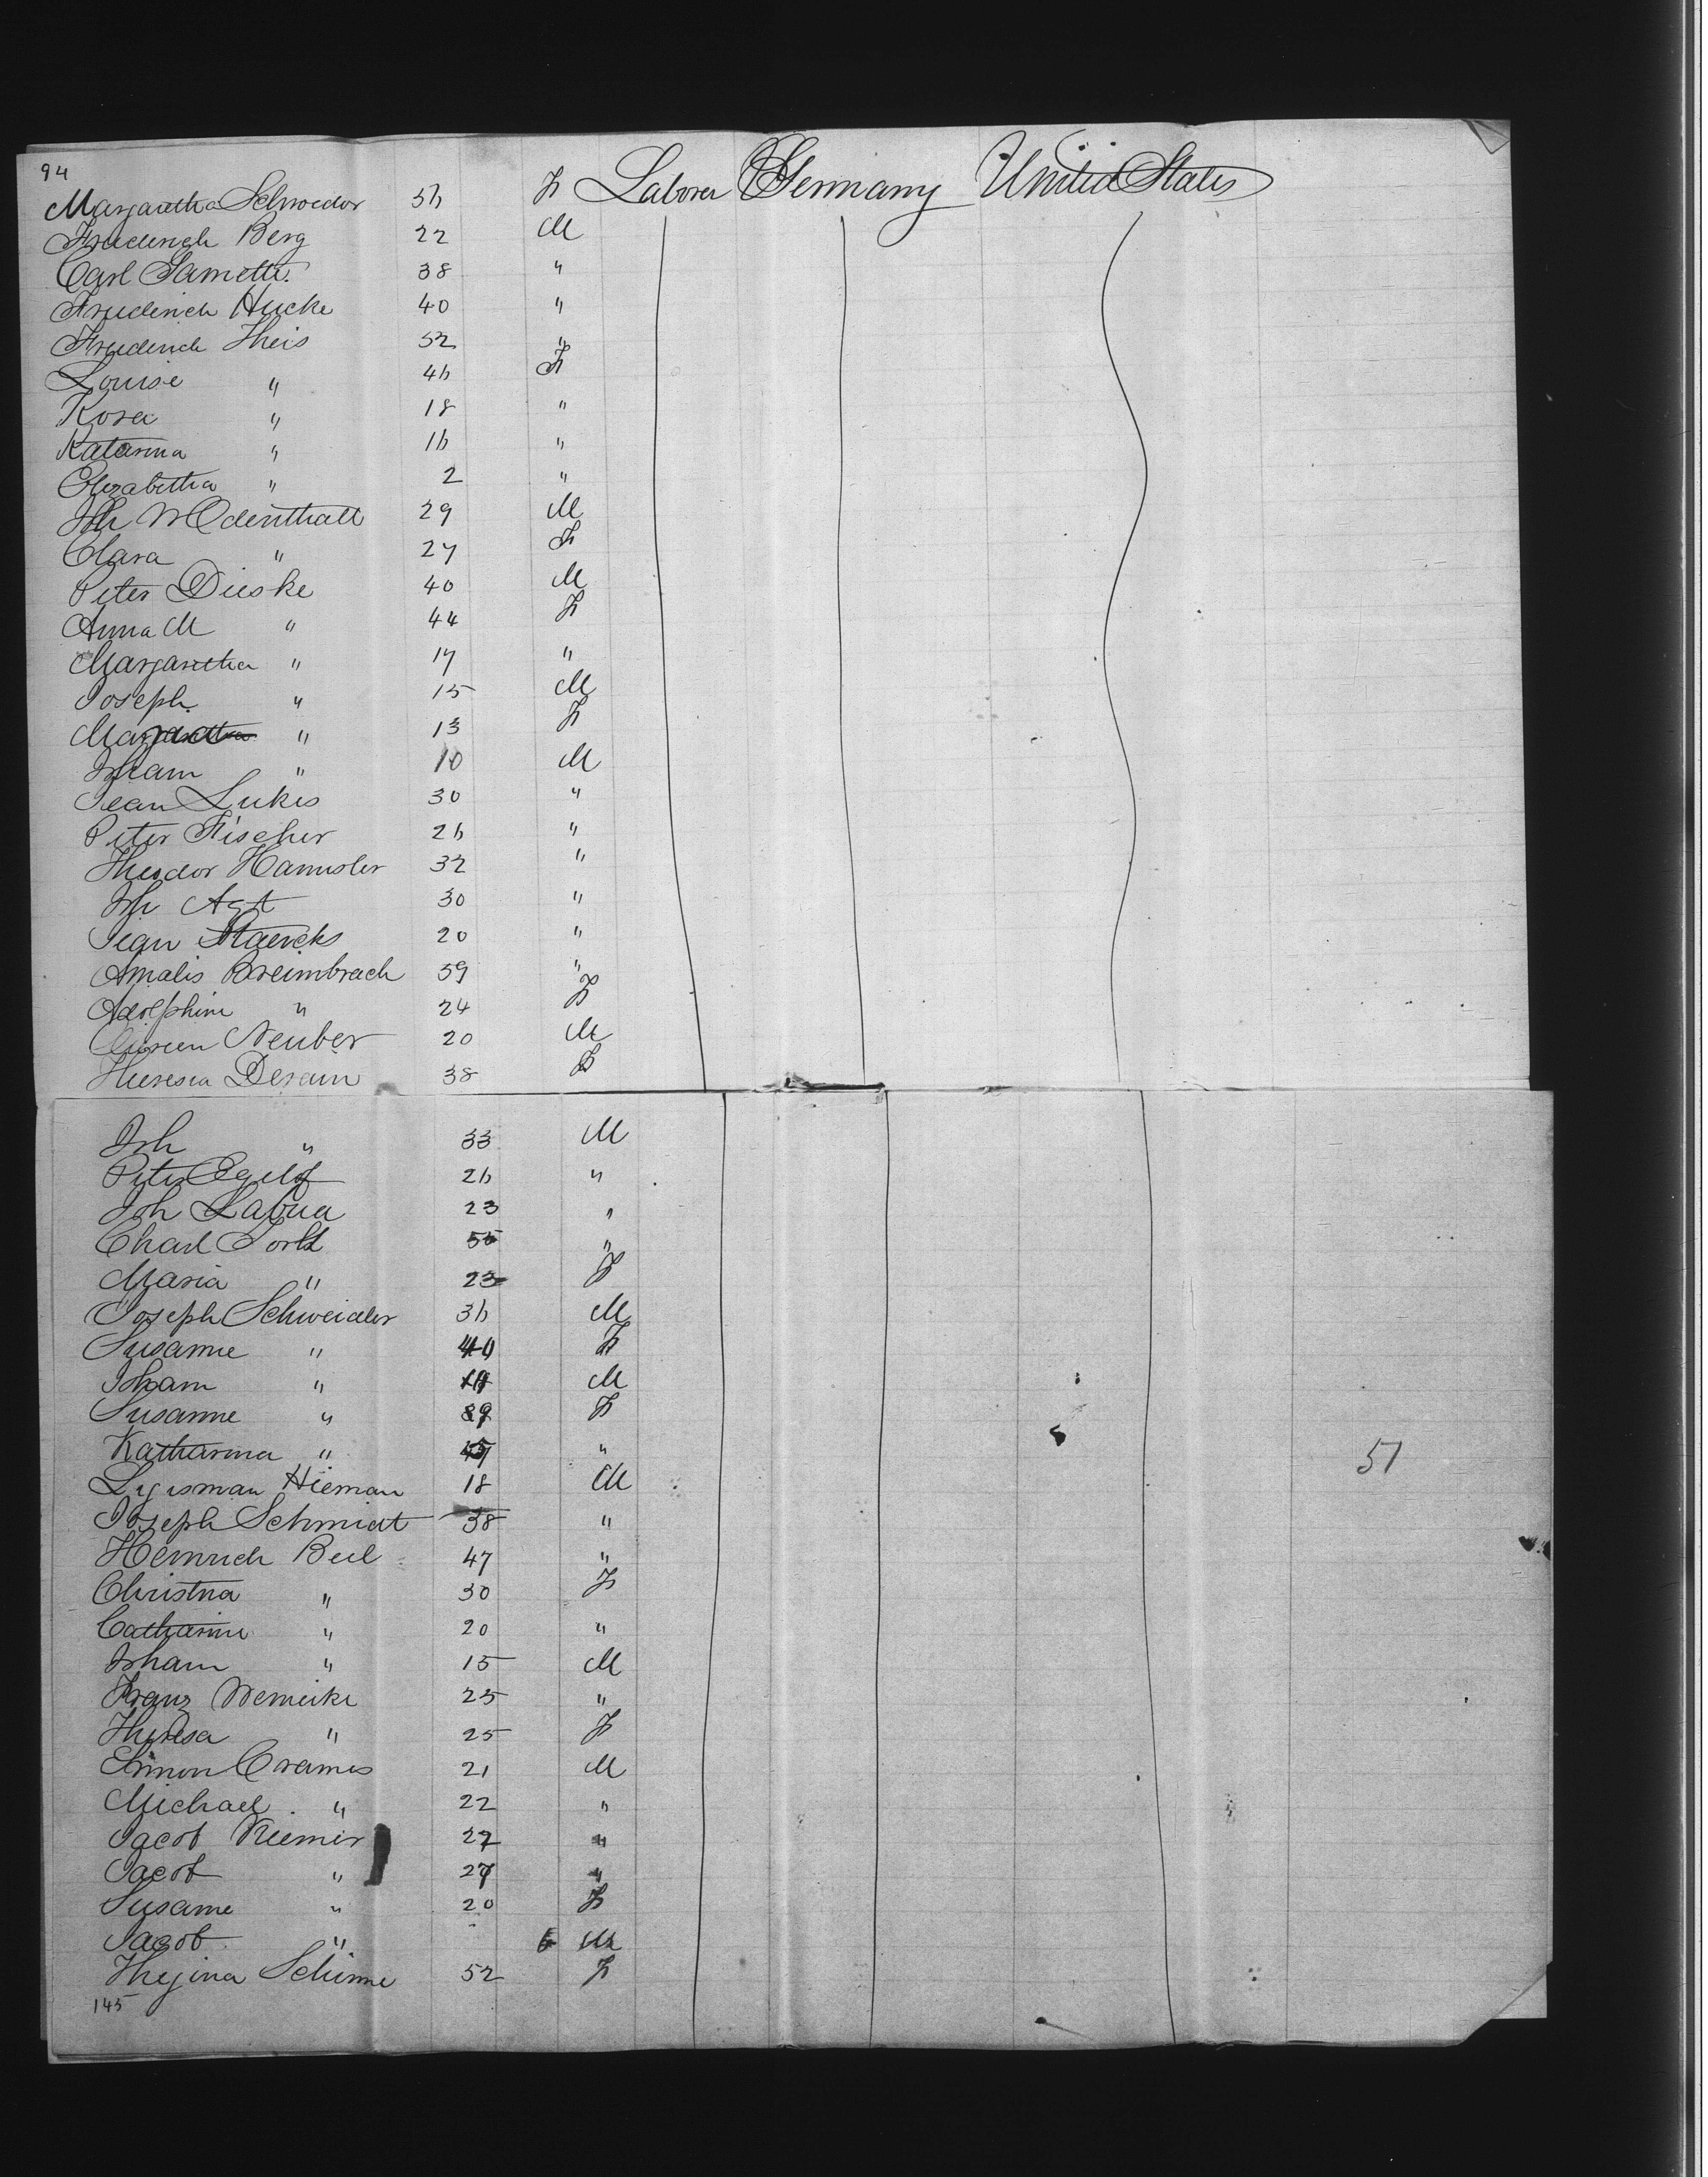 94
Margaretha Schroeder 56 F Laborer Germany United States
Friederich Berg 22 M
Carl 38 "
Friederich Hucke 40 "
Friederich Theis 52 "
Louise " 46 F
Rosa " 18 "
Katarina " 16 "
Elizabetha " 2 "
Joh W Odenthall 29 M
Clara " 27 F
Peter Dieske 40 M
Anna M " 44 F
Margaretha " 17 "
Joseph " 15 M
" 13 F
Joham " 10 M
Jean Lukes 30 "
Peter Fischer 26 "
Theodor 32 "
Joh Agst 30 "
Jean Staercks 20 "
Amalis Breimbrach 59 "
Adolphine " 24 F
Neuber 20 M
Theresia 38 F
Joh " 33 M
Peter 26 "
Joh Labua 23 "
Charl "
Maria " 23 F
Joseph Schweider 36 M
Susanne " F
Joham " M
Susanne " F
Katharina " "
Hieman 18 M
Joseph Schmidt 38 "
Heinrich Beil 47 "
Christina " 30 F
Catharine " 20 "
Joham " 15 M
Franz Wemeike 25 "
Theresa " 25 F
Simon Crames 21 M
Michael " 22 "
Jacob 27 "
Jacob " 27 "
Susanne " 20 F
Jacob " 6 M
Schinne 52 F
145
51